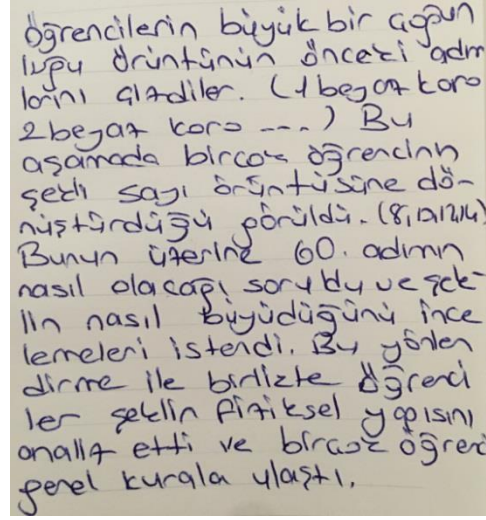 öğrencilerin büyük bir çoğun
luğu örüntünün önceki adım
larını çizdiler. (1 beyaz kare
2 beyaz kare ---) Bu
aşamada birçok öğrencinin
şekli sayı örüntüsüne dö-
nüştürdüğü görüldü. (8,10,12,14)
Bunun üzerine 60. adımın
nasıl olacağı soruldu ve şek-
lin nasıl büyüdüğünü ince
lemeleri istendi. Bu yönlen
dirme ile birlikte öğrenci
ler şeklin fiziksel yapısını
analiz etti ve birçok öğrenci
genel kurala ulaştı.